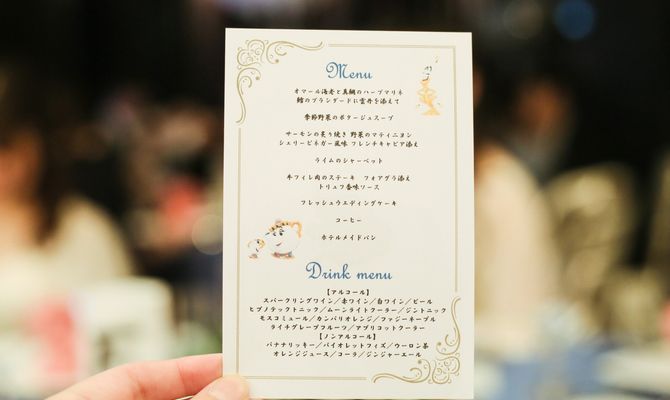 Menu
オマール海老と真鯛のハーブマリネ
鱈のブランダードに雲丹を添えて
季節野菜のポタージュスープ
サーモンの炙り焼き 野菜のマティニヨン
シェリービネガー風味 フレンチキャビア添え
ライムのシャーベット
牛フィレ肉のステーキ フォアグラ添え
トリュフ香味ソース
フレッシュウエディングケーキ
コーヒー
ホテルメイドパン
Drink menu
【アルコール】
スパークリングワイン／赤ワイン／白ワイン／ビール
ヒプノテックトニック／ムーンライトクーラー／ジントニック
モスコミュール／カンパリオレンジ／ファジーネーブル
ライチグレープフルーツ／アプリコットクーラー
【ノンアルコール】
バナナリッキー／バイオレットフィズ／ウーロン茶
オレンジジュース／コーラ／ジンジャーエール